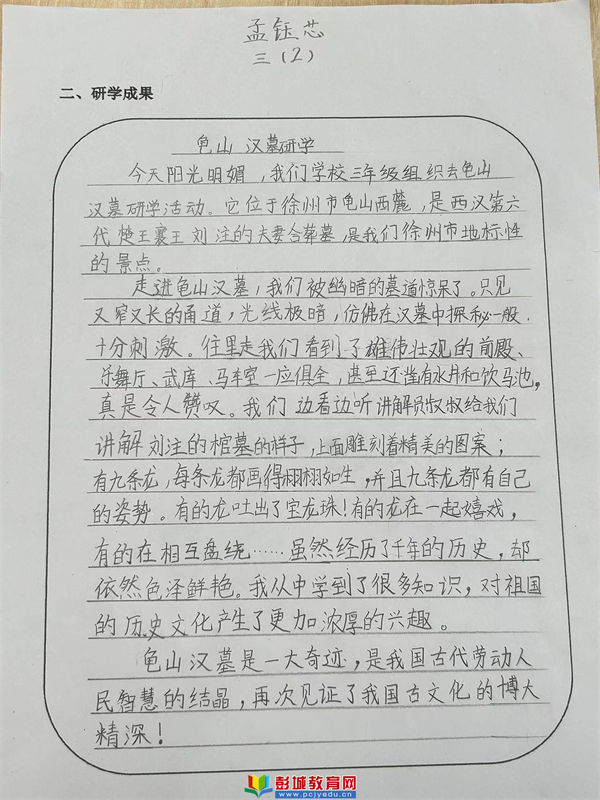 孟钰芯
三(2)
二、研学成果
龟山汉墓研学
今天阳光明媚,我们学校三年级组织去龟山
汉墓研学活动。它位于徐州市龟山西麓,是西汉第六
代楚王襄王刘注的夫妻合葬墓,是我们徐州市地标性
的景点。
走进龟山汉墓,我们被幽暗的墓道惊呆了。只见
又窄又长的甬道,光线极暗,仿佛在汉墓中探秘一般,
十分刺激。往里走我们看到了雄伟壮观的前殿、
乐舞厅、武库、马车室一应俱全,甚至还凿有水井和饮马池,
真是令人赞叹。我们边看边听讲解员叔叔给我们
讲解刘注的棺墓的样子,上面雕刻着精美的图案;
有九条龙,每条龙都画得栩栩如生,并且九条龙都有自己
的姿势。有的龙吐出了宝龙珠!有的龙在一起嬉戏,
有的在相互盘绕……虽然经历了千年的历史,却
依然色泽鲜艳。我从中学到了很多知识,对祖国
的历史文化产生了更加浓厚的兴趣。
龟山汉墓是一大奇迹,是我国古代劳动人
民智慧的结晶,再次见证了我国古文化的博大
精深!
彭城教育网
www.pcjyedu.cn